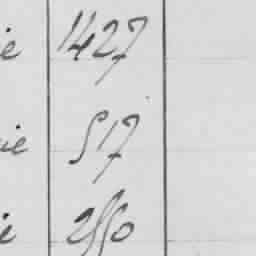 ie 1427
ie 517
ie 2550